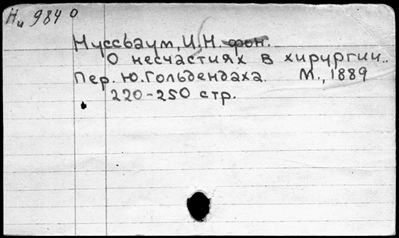 Ни 984 0
Нуссбаум, И.Н. фон.
О несчастиях в хирургии..
Пер. Ю. Гольдендаха. М., 1889
220-250 стр.